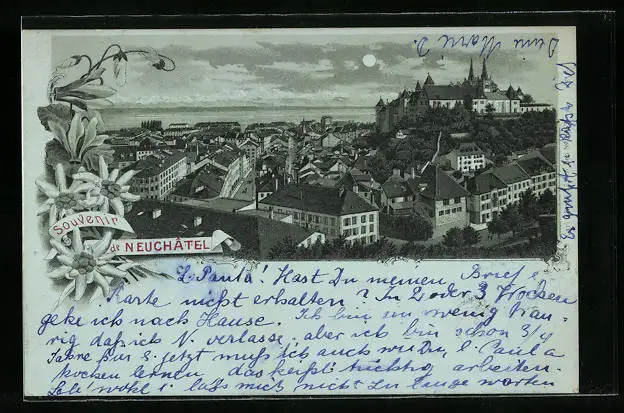 Souvenir
de NEUCHÂTEL
L. Paula! Hast Du meinen Brief e.
Karte nicht erhalten? In 2 oder 3 Wochen
gehe ich nach Hause. Ich bin ein wenig trau-
rig daß ich N. verlasse, aber ich bin schon 3/4
Jahre hier jetzt muß ich auch l. Paula
kochen lernen, das heißt tüchtig arbeiten.
Leb' wohl! laß mich nicht zu lange warten
Es grüßt u. küßt Dich
Deine Marie